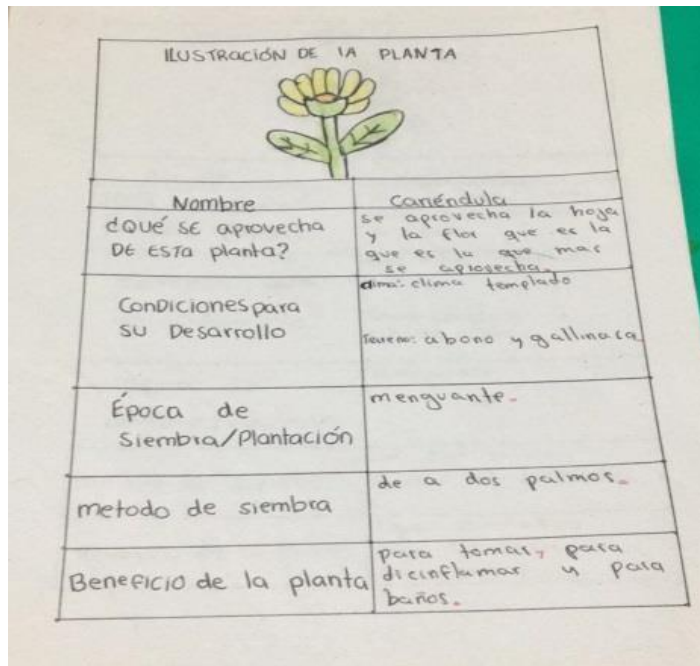 ILUSTRACIÓN DE LA PLANTA
Nombre
Caléndula
¿QUÉ SE aprovecha
DE ESTA planta?
se aprovecha la hoja
y la flor que es la
que es la que mas
se aprovecha.
Condiciones para
su Desarrollo
clima: clima templado
Terreno: abono y gallinaza
Época de
Siembra/Plantación
menguante.
metodo de siembra
de a dos palmos.
Beneficio de la planta
para tomar, para
dicinflamar y para
baños.